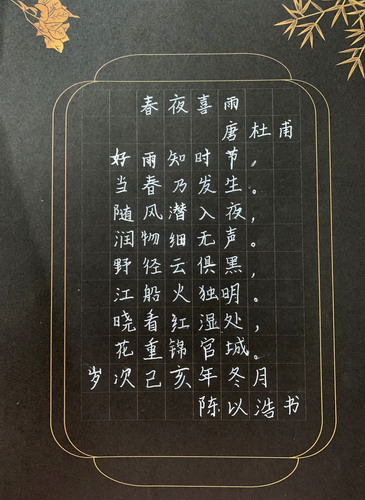 春夜喜雨
唐杜甫
好雨知时节，
当春乃发生。
随风潜入夜，
润物细无声。
野径云俱黑，
江船火独明。
晓看红湿处，
花重锦官城。
岁次己亥年冬月
陈以浩书